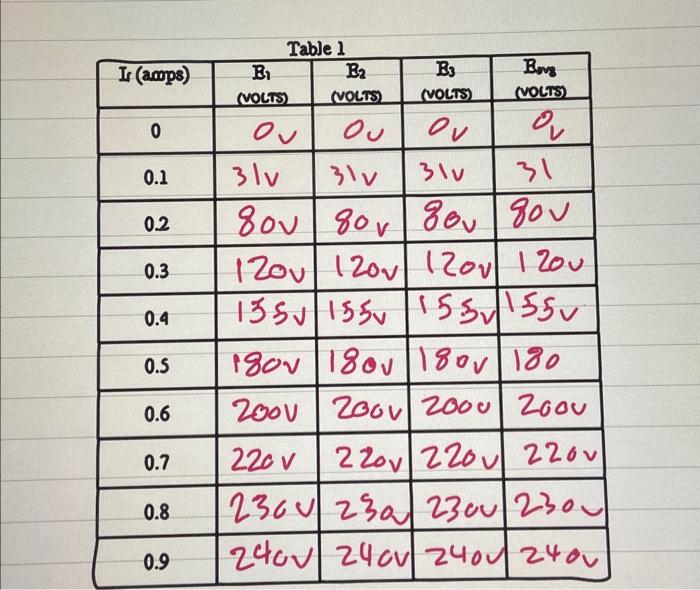 Table 1
If (amps) B1 (VOLTS) B2 (VOLTS) B3 (VOLTS) Bavg (VOLTS)
0 0v 0v 0v 0v
0.1 31v 31v 31v 31
0.2 80v 80v 80v 80v
0.3 120v 120v 120v 120v
0.4 155v 155v 155v 155v
0.5 180v 180v 180v 180
0.6 200v 200v 200v 200v
0.7 220v 220v 220v 220v
0.8 230v 230v 230v 230v
0.9 240v 240v 240v 240v